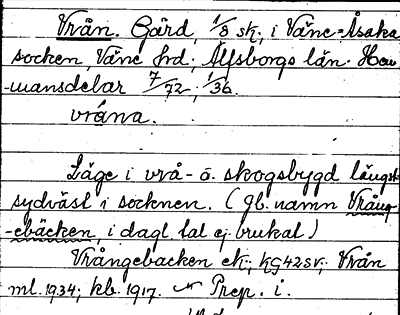 Vrån. Gård, 1/8 sk, i Väne-Åsaka
socken, Väne hd, Älfsborgs län. Hem
-mansdelar 7/72, 1/36.
vråna.
Läge i vrå- o. skogsbygd längst
sydväst i socknen. (gl. namn Vrång-
-ebäcken, i dagl. tal ej brukat)
Vrångebacken ek; kg42sv; Vrån
ml. 1934; kb. 1917. Prep. i.